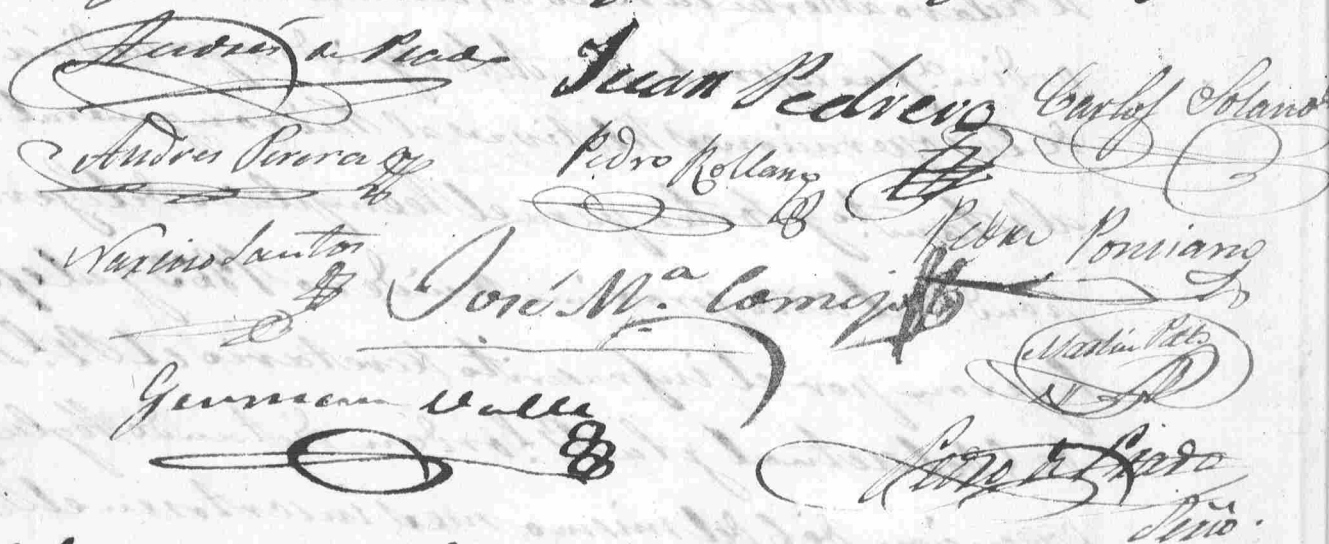 Andrés de Prado
Juan Pedrero
Carlos Solano
Andres Perera
Pedro Rollano
Narciso Santos
José Mª Cornejo
Pedro Ponciano
Martin
German Valle
Pedro de Prado
Srio.